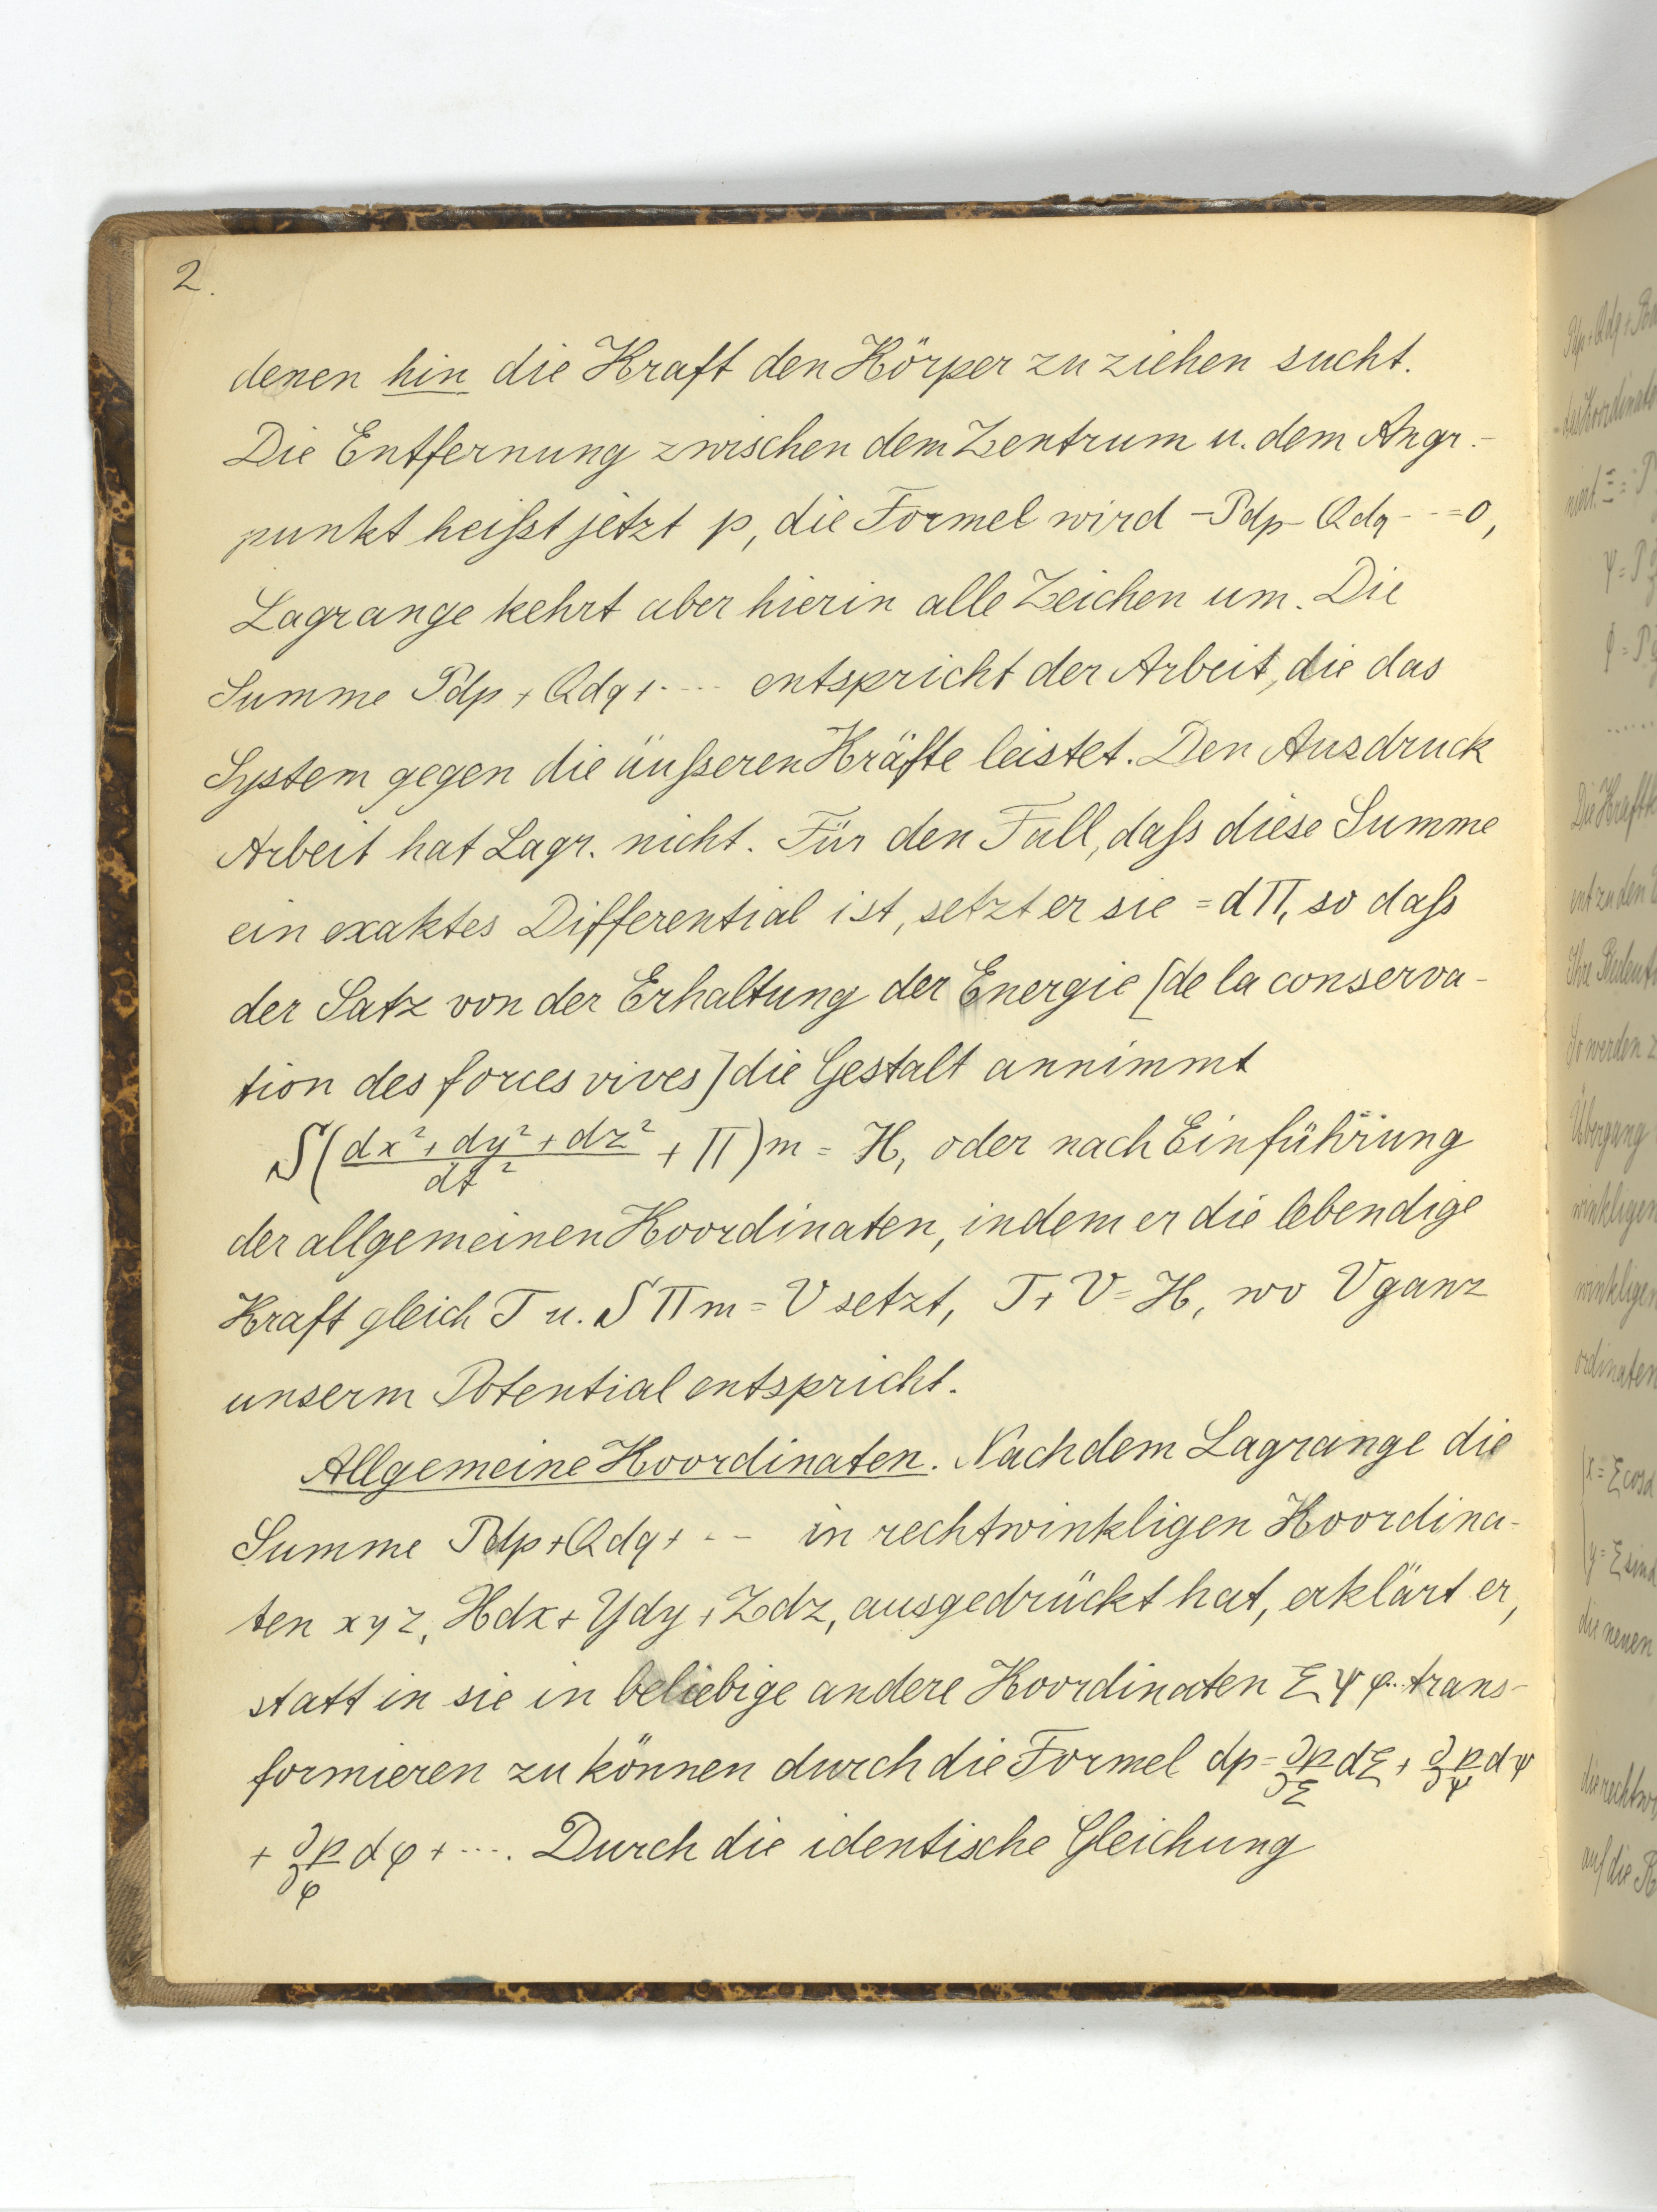 2.
denen hin die Kraft den Körper zu ziehen sucht.
Die Entfernung zwischen dem Zentrum u. dem Angr.-
punkt heißt jetzt p, die Formel wird -Pdp-Qdq-··=0,
Lagrange kehrt aber hierin alle Zeichen um. Die
Summe Pdp+Qdq+···· entspricht der Arbeit, die das
System gegen die äußeren Kräfte leistet. Den Ausdruck
Arbeit hat Lagr. nicht. Für den Fall, daß diese Summe
ein exaktes Differential ist, setzt er sie = dΠ, so daß
der Satz von der Erhaltung der Energie [de la conserva-
tion des forces vives] die Gestalt annimmt
S((dx²+dy²+dz²)/dt² + Π)m = H, oder nach Einführung
der allgemeinen Koordinaten, indem er die lebendige
Kraft gleich T u. SΠm = V setzt, T+V=H, wo V ganz
unserm Potential entspricht.
Allgemeine Koordinaten. Nachdem Lagrange die
Summe Pdp+Qdq+··· in rechtwinkligen Koordina-
ten x y z, Xdx+Ydy+Zdz, ausgedrückt hat, erklärt er,
statt in sie in beliebige andere Koordinaten ξ ψ φ... trans-
formieren zu können durch die Formel dp=∂p/∂ξ dξ+∂p/∂ψ dψ
+∂p/∂φ dφ+····. Durch die identische Gleichung
Die Kraftk
So werden z
Übergang
winkligen
winkligen
ordinaten
die neuen
auf die